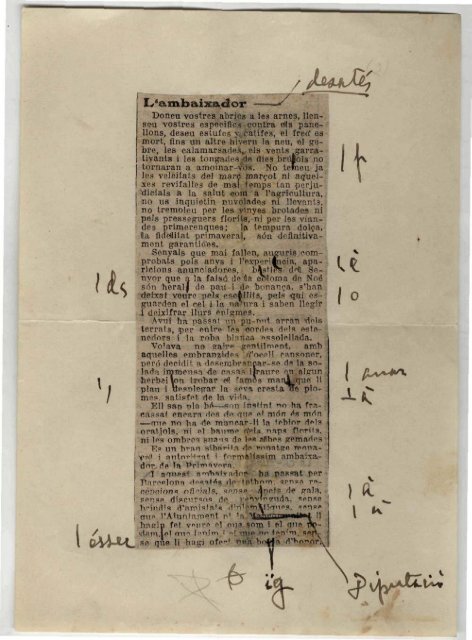 desatés
L'ambaixador
Doneu vostres abrics a les arnes, llen-
seu vostres específics contra els pane-
llons, deseu estufes y catifes, el fred es
mort, fins un altre hivern la neu, el ge-
bre, les calamarsades, els vents garra-
tivants i les tongades de dies brúfols no
tornaran a amoinar-vos. No temeu ja
les vel·leitats del març marçot ni aquei-
xes revifalles de mal temps tan perju-
dicials a la salut com a l'agricultura,
no us inquietin nuvolades ni llevants,
no tremoleu per les vinyes brotades ni
pels presseguers florits, ni per les vian-
des primerenques; la tempura dolça,
la fidelitat primaveral, són definitiva-
ment garantides.
Senyals que mai fallen, auguris com-
probats pels anys i l'experiència, apa-
ricions anunciadores, del Se-
nyor que a la faisó de la coloma de Noé
són herald de pau i de bonança, s'han
deixat veure pels escullits, pels qui es-
guarden el cel i la natura i saben llegir
i deixifrar llurs enigmes.
Avui ha passat un pu-put arran dels
terrats, per entre les cordes dels este-
nedors i la roba blanca assolellada.
Volava no gaire gentilment, amb
aquelles embranzides d'ocell cansoner,
però decidit a desembrancar-se de la so-
lada immensa de casas i veure on algun
herbei on trobar el famós mant que li
plau i desplegar la seva cresta de plo-
mes, satisfet de la vida.
Ell sap pla bé—son instint no ha fra-
cassat encara des de que el món és món
—que no ha de mancar-li la tebior dels
oratjols, ni el baume dels naps florits,
ni les ombres suaus de les albes gemades
Es un bran sibarita de rumatge mona-
cal i autoritzat i formalíssim ambaixa-
dor de la Primavera.
I aquest ambaixador ha passat per
Barcelona desatés de tothom, sense re-
cepcions oficials, sense pets de gala,
sense discursos de benvinguda, sense
brindis d'amistats diplomàtiques, sense
que l'Ajuntament ni la li
hagin fet veure el que som i el que no
dam el que tenim i el que no tenim, sen-
se que li hagi ofert una banda d'honor.
1 p
1 è
1 ds
1 o
1 anar
1 à
1,
1 à
1 ésser
ïg
Diputació